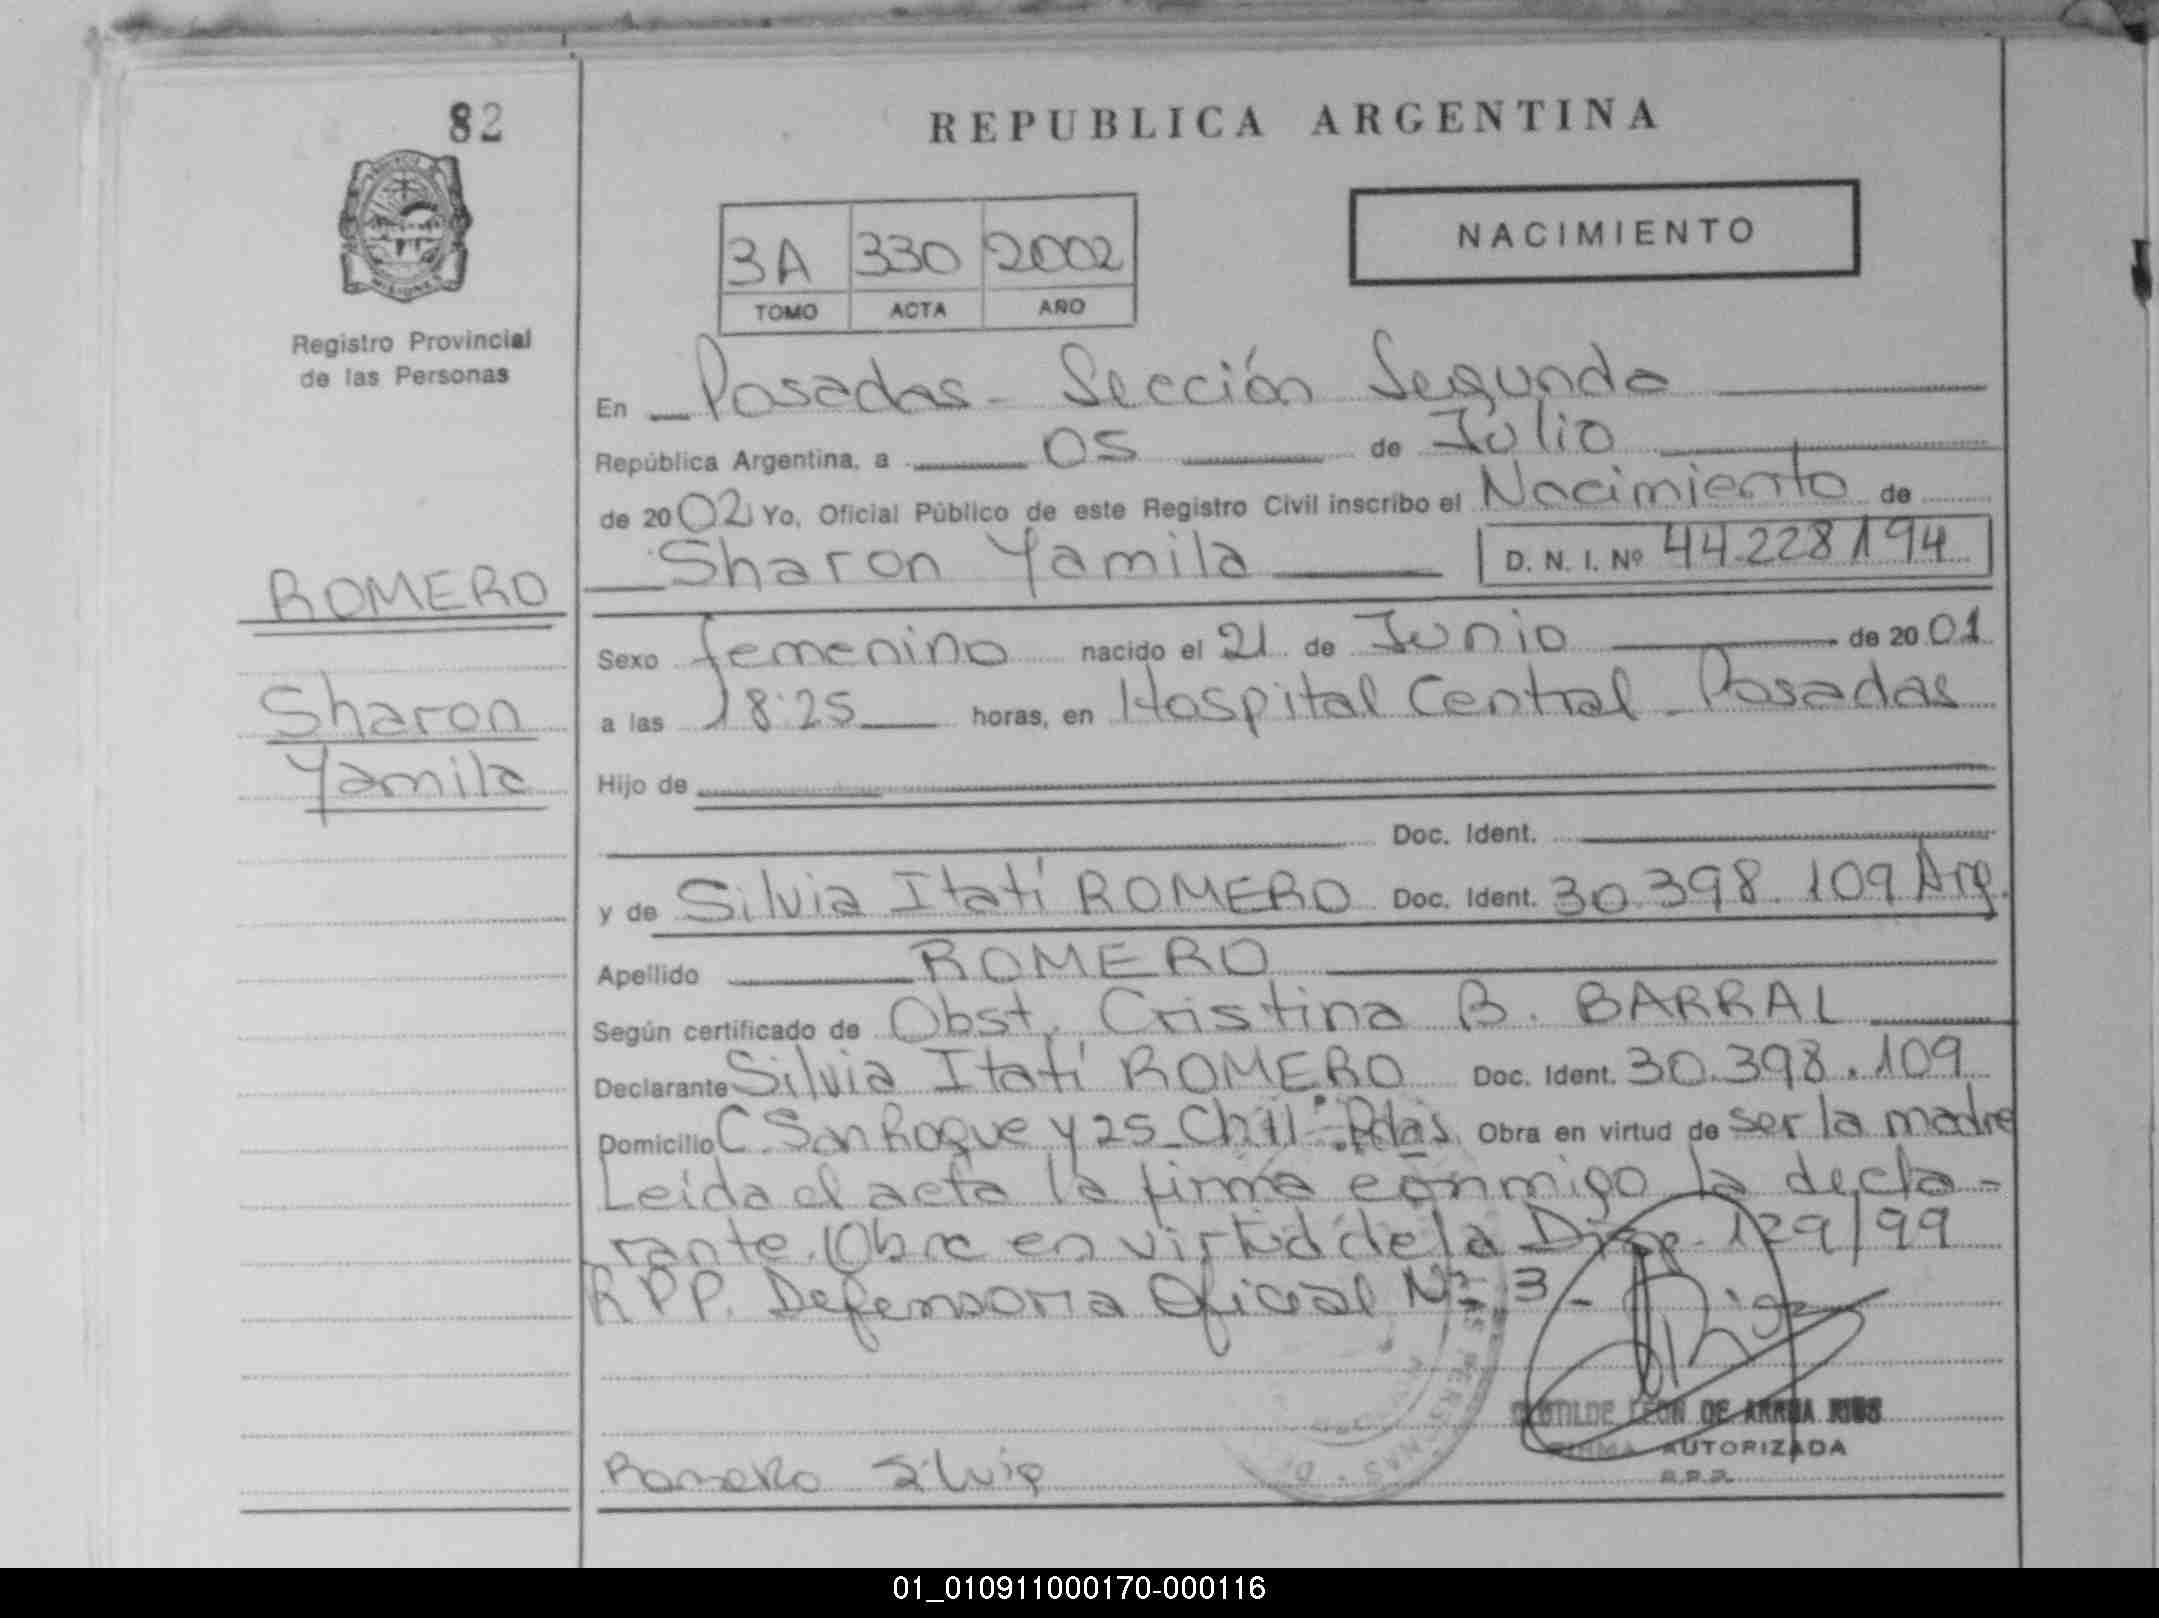 82
REPUBLICA ARGENTINA
NACIMIENTO
3A 330 2002
TOMO ACTA AÑO
Registro Provincial
de las Personas
En Posadas - Sección Segunda
República Argentina, a 05 de Julio
de 2002 Yo, Oficial Público de este Registro Civil inscribo el Nacimiento de
Sharon Yamila D. N. I. Nº 44.228.194
ROMERO
Sharon
Yamila
Sexo femenino nacido el 21 de Junio de 2001
a las 18:25 horas, en Hospital Central - Posadas
Hijo de
Doc. Ident.
y de Silvia Itatí ROMERO Doc. Ident. 30.398.109 Arg.
Apellido ROMERO
Según certificado de Obst. Cristina B. BARRAL
Declarante Silvia Itatí ROMERO Doc. Ident. 30.398.109
Domicilio C. San Roque y 25 - Ch 11 - Pdas Obra en virtud de ser la madre
Leída el acta la firma conmigo la decla-
rante. Obra en virtud de la Disp. 129/99
RPP. Defensoria Oficial Nº 3 -
LEON DE ARRUA RIOS
FIRMA AUTORIZADA
R.P.P.
Romero Silvia
01_010911000170-000116